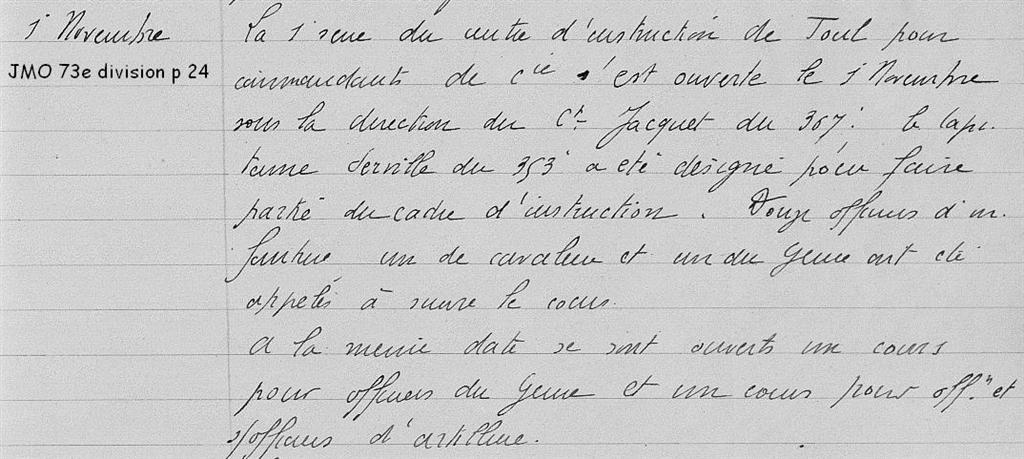 1er Novembre
JMO 73e division p 24
La 1ere serie du centre d'instruction de Toul pour
commandants de Cie s'est ouverte le 1er Novembre
sous la direction du Ct Jacquet du 367e. Le Capi-
taine Derville du 353e a été désigné pour faire
partie du cadre d'instruction. Douze officiers d'in-
fanterie un de cavalerie et un du Génie ont été
appelés à suivre le cours.
A la même date se sont ouverts un cours
pour officiers du Génie et un cours pour offrs et
s/officiers d'artillerie.